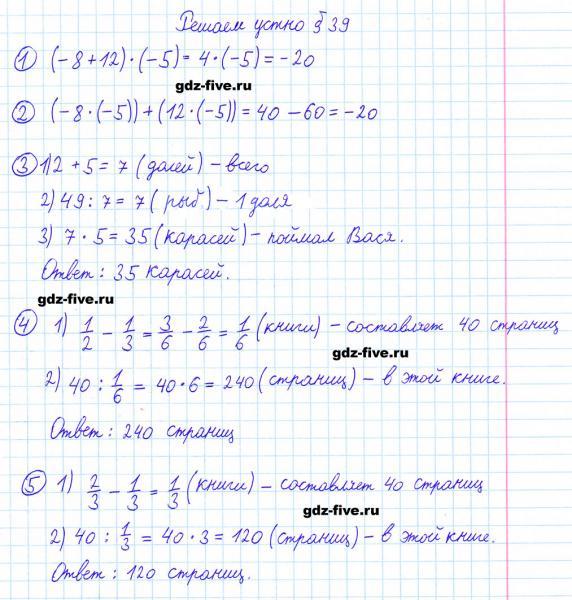 Решаем устно § 39
① (−8 + 12) · (−5) = 4 · (−5) = −20
gdz-five.ru
② (−8 · (−5)) + (12 · (−5)) = 40 − 60 = −20
③ 1) 2 + 5 = 7 (долей) − всего
2) 49 : 7 = 7 (рыб) − 1 доля
3) 7 · 5 = 35 (карасей) − поймал Вася.
Ответ : 35 карасей.
gdz-five.ru
④ 1) 1/2 − 1/3 = 3/6 − 2/6 = 1/6 (книги) − составляет 40 страниц
gdz-five.ru
2) 40 : 1/6 = 40 · 6 = 240 (страниц) − в этой книге.
Ответ : 240 страниц
⑤ 1) 2/3 − 1/3 = 1/3 (книги) − составляет 40 страниц
gdz-five.ru
2) 40 : 1/3 = 40 · 3 = 120 (страниц) − в этой книге.
Ответ : 120 страниц.